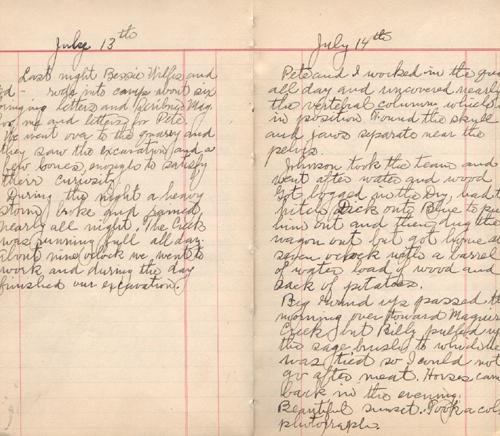 July 13th
Last night Bessie Willis and
rode into camp about six
letters and Scribners Mag.
for me and letters for Pete.
We went over to the quarry and
they saw the excavation and a
few bones, enough to satisfy
their curiosity.
During the night a heavy
storm broke and rained
nearly all night. The Creek
was running full all day.
about nine oclock we went to
work and during the day
finished our excavation.
July 14th
Pete and I worked in the qua
all day and uncovered nearly
the vertebral column which
in position. Found the skull
and jaws separate near the
pelvis.
Johnson took the team and
went after water and wood
Got bogged in the Dry, had t
hitch Dick onto Blue to pu
him out and then dig the
wagon out but got home a
seven oclock with a barrel
of water load of wood and
sack of potatoes.
Big round up passed th
morning over toward Maguire
Creek, but Billy pulled up
the sage brush to which he
was tied so I could not
go after meat. Horses cam
back in the evening.
Beautiful sunset. Took a col
photograph.